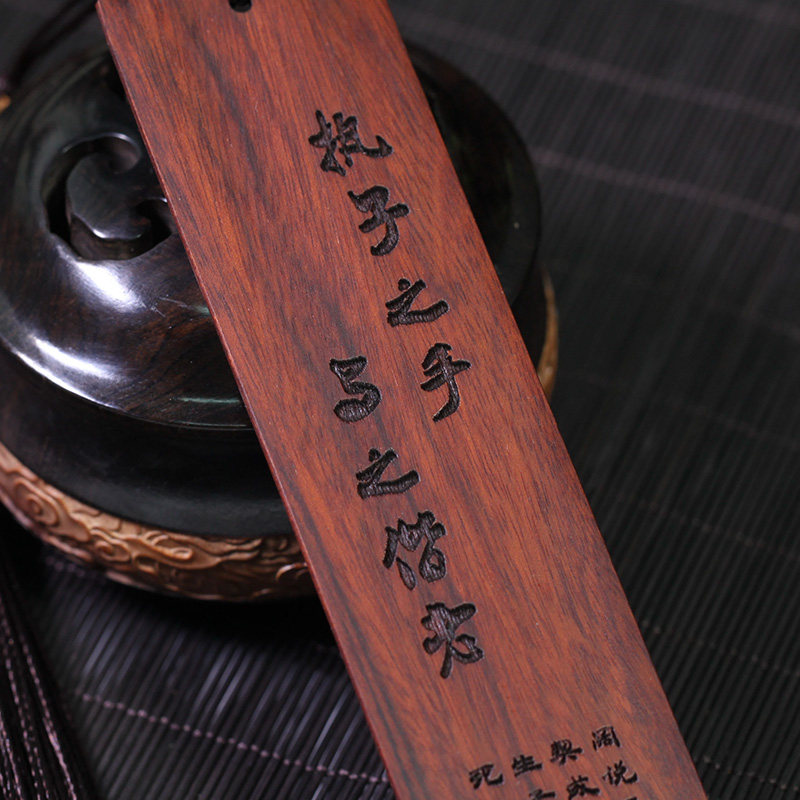 执子之手
与之偕老
死生契阔
子成悦